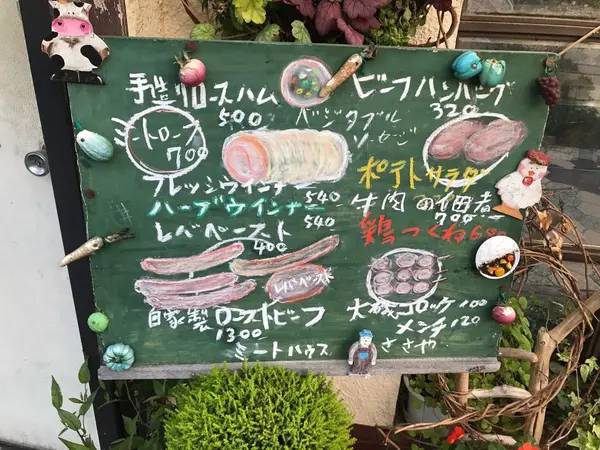 手造りロースハム
500
トロース
700
ベジタブル
ソーセージ
ビーフハンバーグ
320
フレッシュウインナー
540
ハーブウインナー
540
レバーペースト
400
ポテトサラダ
牛肉の佃煮
700
鶏つくね600
レバーペースト
自家製ローストビーフ
1300
大磯コロッケ100
メンチ120
ミートハウス ささや